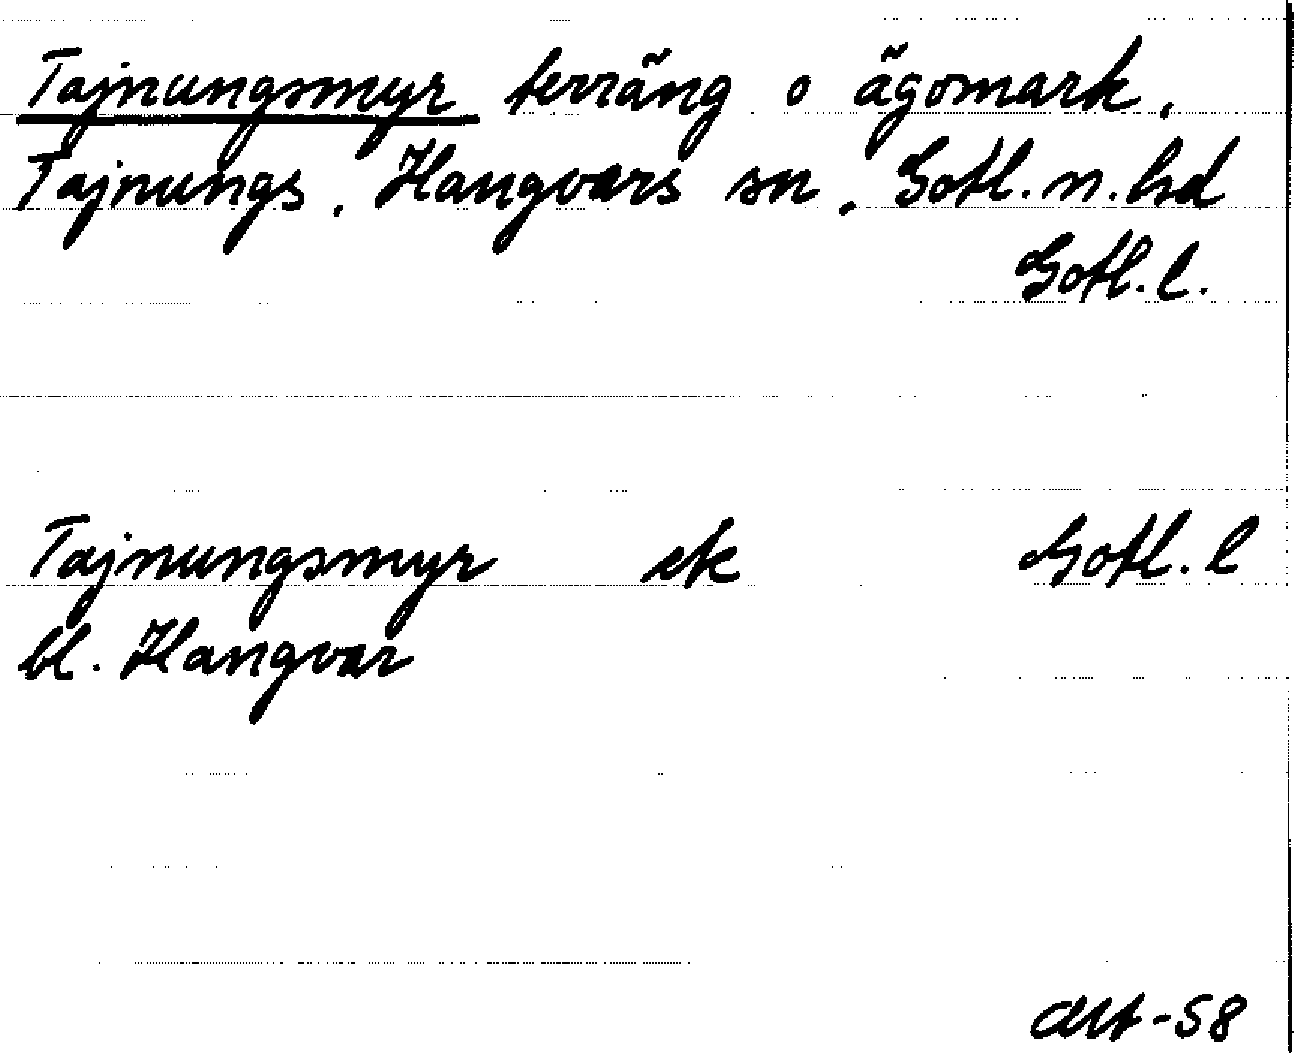 Tajnungsmyr terräng o ägomark,
Tajnungs, Hangvars sn, Gotl. n. hd
Gotl. l.
Tajnungsmyr ek Gotl. l
bl. Hangvar